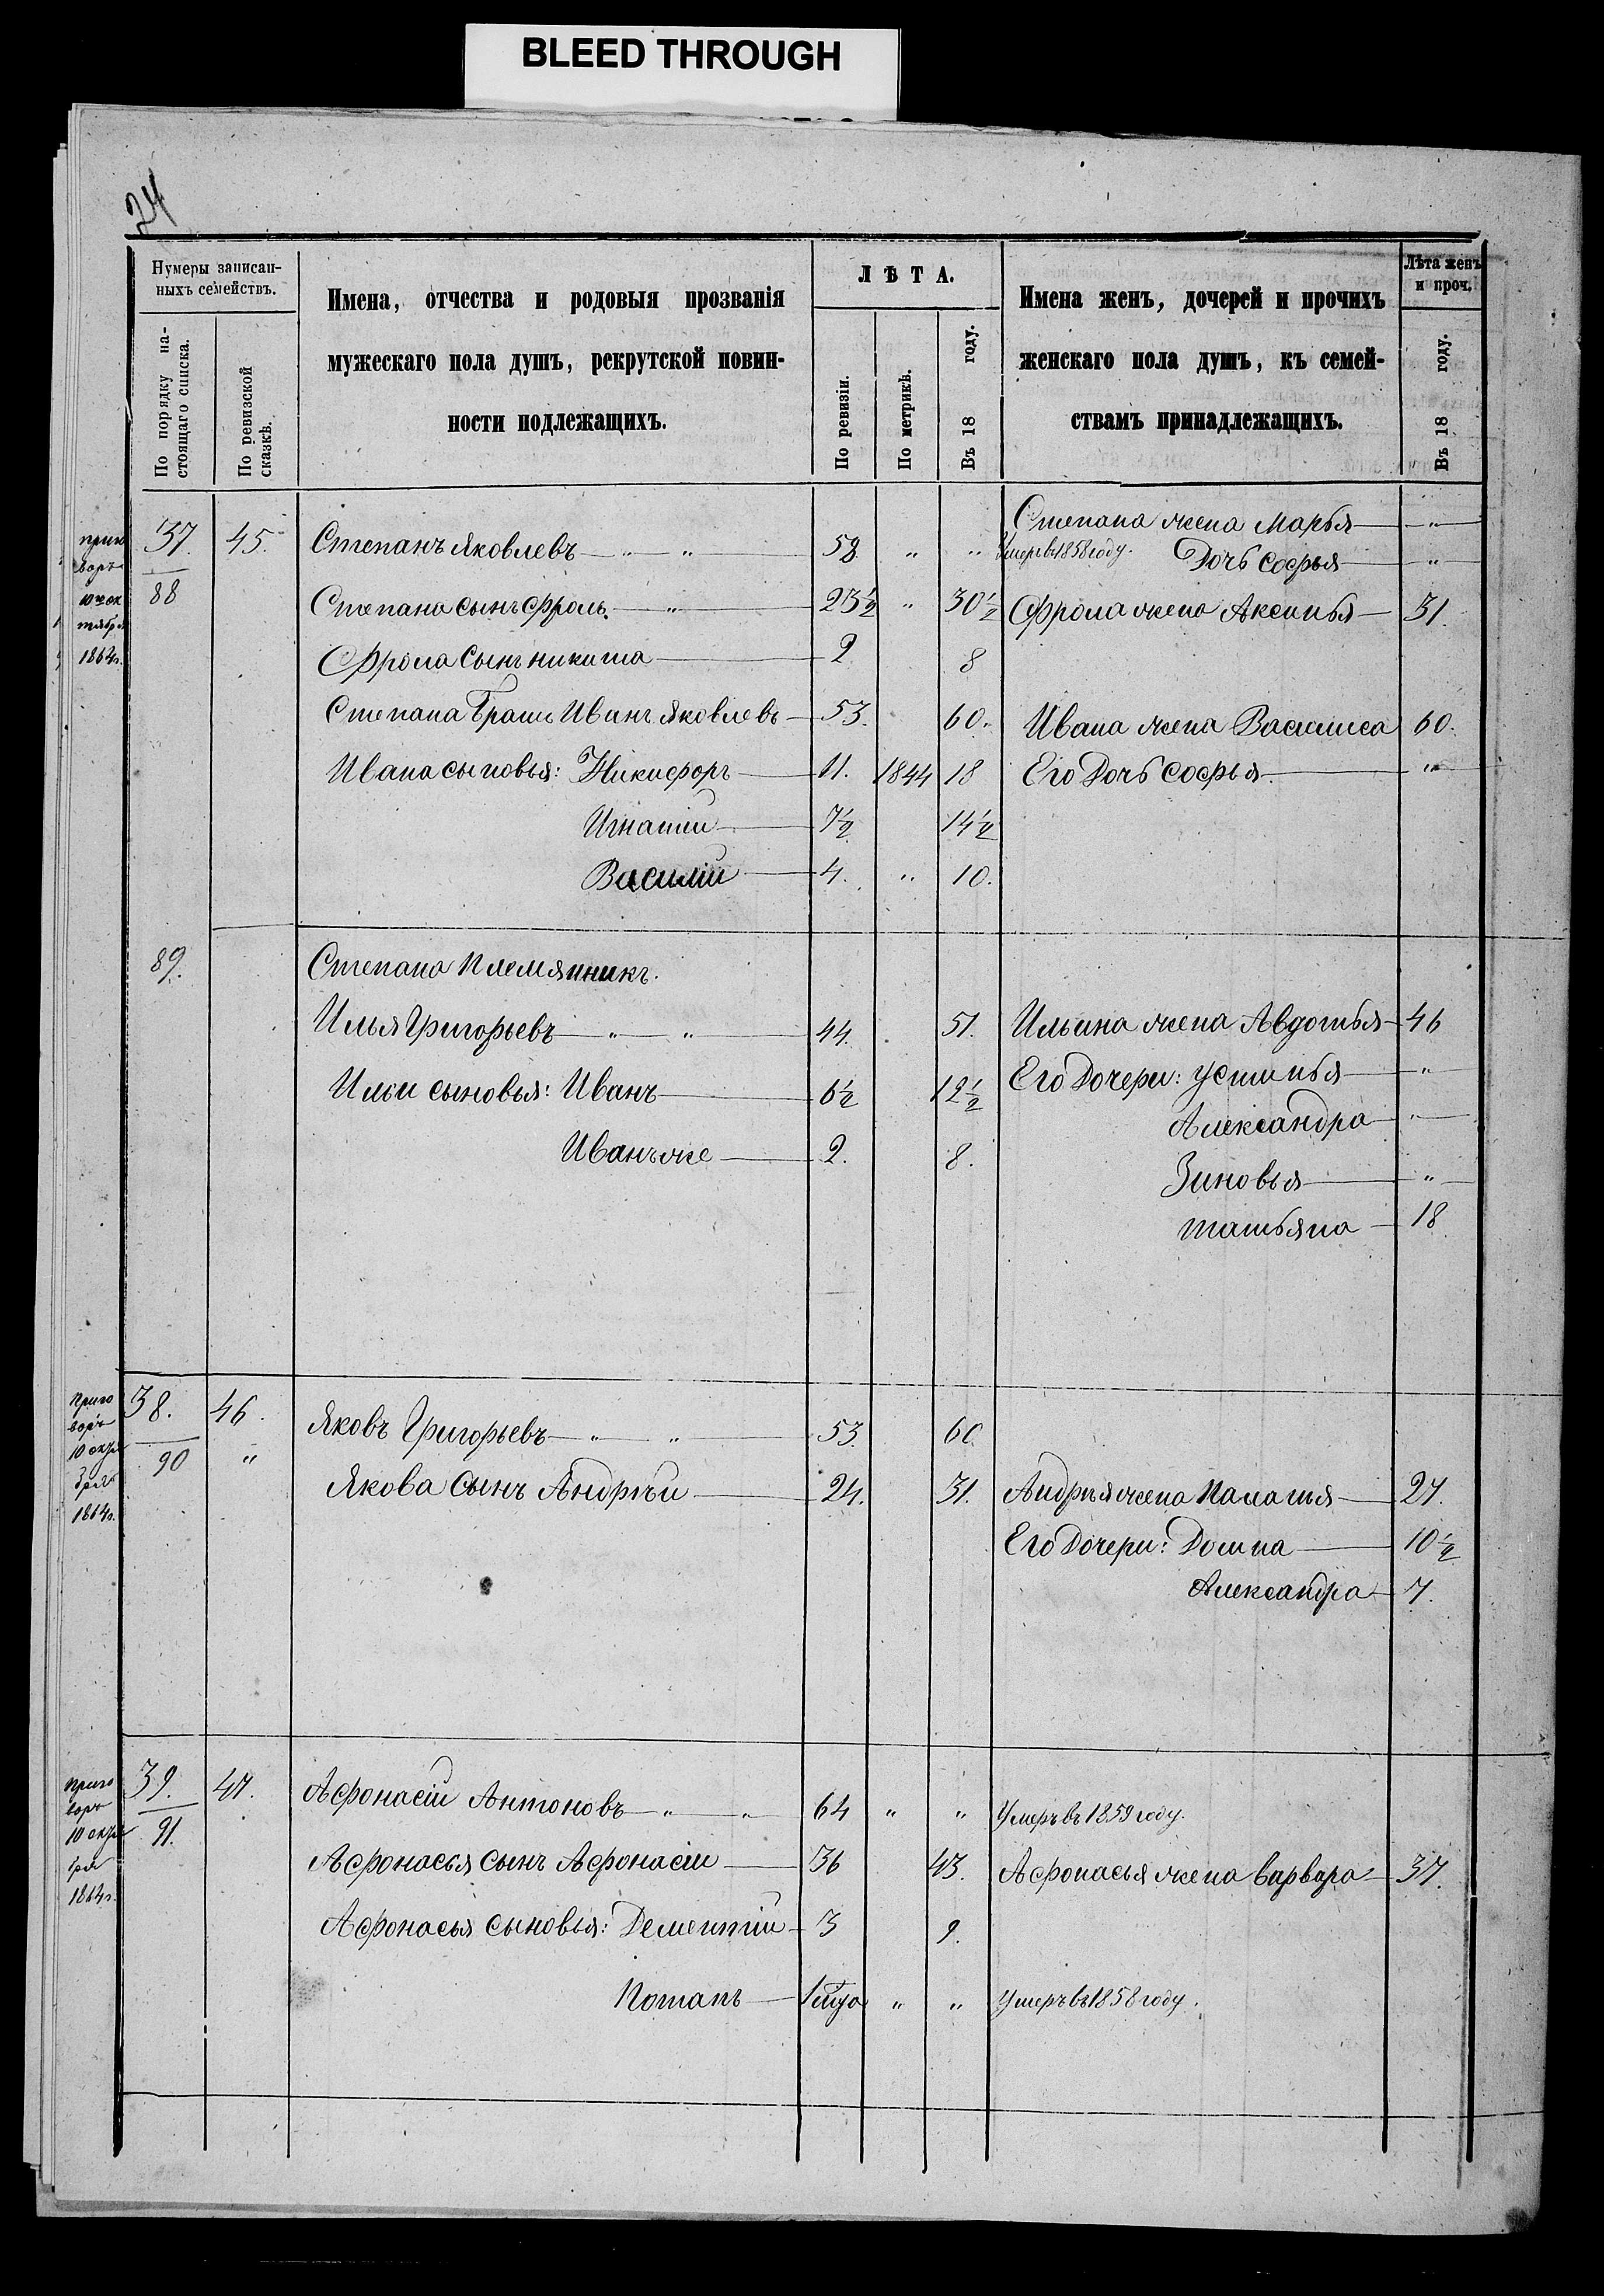 BLEED THROUGH
24
Нумеры записан-
ныхъ семействъ.
По порядку на-
стоящаго списка.
По ревизской
сказкѣ.
Имена, отчества и родовыя прозванія
мужескаго пола душъ, рекрутской повин-
ности подлежащихъ.
ЛѢТА.
По ревизіи.
По метрикѣ.
Въ 18 году.
Имена женъ, дочерей и прочихъ
женскаго пола душъ, къ семей-
ствамъ принадлежащихъ.
Лѣта женъ
и проч.
Въ 18 году.
Степана жена Марья — "
37. 45. Степанъ Яковлевъ — " — " 58 " " Умеръ въ 1858 году. Дочь Софья — "
88 Степана сынъ Фролъ — " 23½ " 30½ Фрола жена Аксинья — 31.
1864г. Фрола сынъ Никита — 2 8
Степана братъ Иванъ Яковлевъ — 53. 60. Ивана жена Василиса 60.
Ивана сыновья: Никифоръ — 11. 1844 18 Его дочь Софья — "
Игнатій — 7½ 14½
Василій — 4. " 10.
89. Степана племянникъ.
Илья Григорьевъ — " — " 44. 51. Ильина жена Авдотья — 46
Ильи сыновья: Иванъ — 6½ 12½ Его дочери: Устинья — "
Александра — "
Иванъ же — 2. 8.
Зиновья — "
Татьяна — 18
Приго
воръ
38. 46.
Яковъ Григорьевъ — " — " 53. 60
90 "
Якова сынъ Андрѣй — 24. 31. Андрея жена Палагья — 27.
1864г.
Его дочери: Домна — 10½
Александра — 7.
Приго
воръ
39. 47. Афонасій Антоновъ — " — " 64 " " Умеръ въ 1859 году.
91.
Афонасья сынъ Афонасій — 36 43. Афонасья жена Варвара — 37.
1864г.
Афонасья сыновья: Дементій — 3 9.
Потапъ — " " умеръ въ 1858 году.